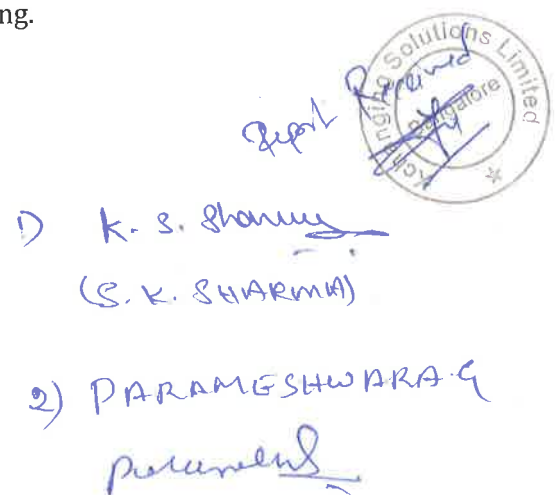 ng.
Solutions Limited
Bangalore
Report Received
1) K. S. Sharma
(S. K. SHARMA)
2) PARAMESHWARA.G